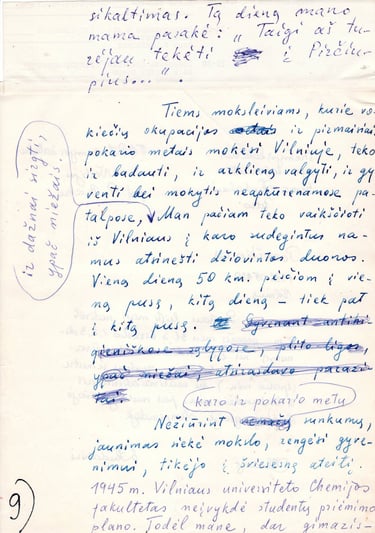 sikaltimas. Tą dieną mano
mama pasakė: „Taigi aš tu-
rėjau tekėti į Pirčiu-
pius...".
Tiems moksleiviams, kurie vo-
kiečių okupacijos ir pirmaisiais
pokario metais mokėsi Vilniuje, teko
ir badauti, ir arklieną valgyti, ir gy-
venti bei mokytis neapkūrenamose pa-
talpose,
ir dažnai sirgti,
ypač niežais.
Man pačiam teko vaikščioti
iš Vilniaus į karo sudegintus na-
mus atsinešti džiovintos duonos.
Vieną dieną 50 km. pėsčiom į vie-
ną pusę, kitą dieną – tiek pat
į kitą pusę. Gyvenant antihi-
gieniškose sąlygose, plito ligos,
ypač niežai, atsirasdavo parazi-
tai.
karo ir pokario metų
Nežiūrint sunkumų,
jaunimas siekė mokslo, rengėsi gyve-
nimui, tikėjo į šviesesnę ateitį.
1945 m. Vilniaus universiteto Chemijos
fakultetas neįvykdė studentų priėmimo
plano. Todėl mane, dar gimazis-
9)